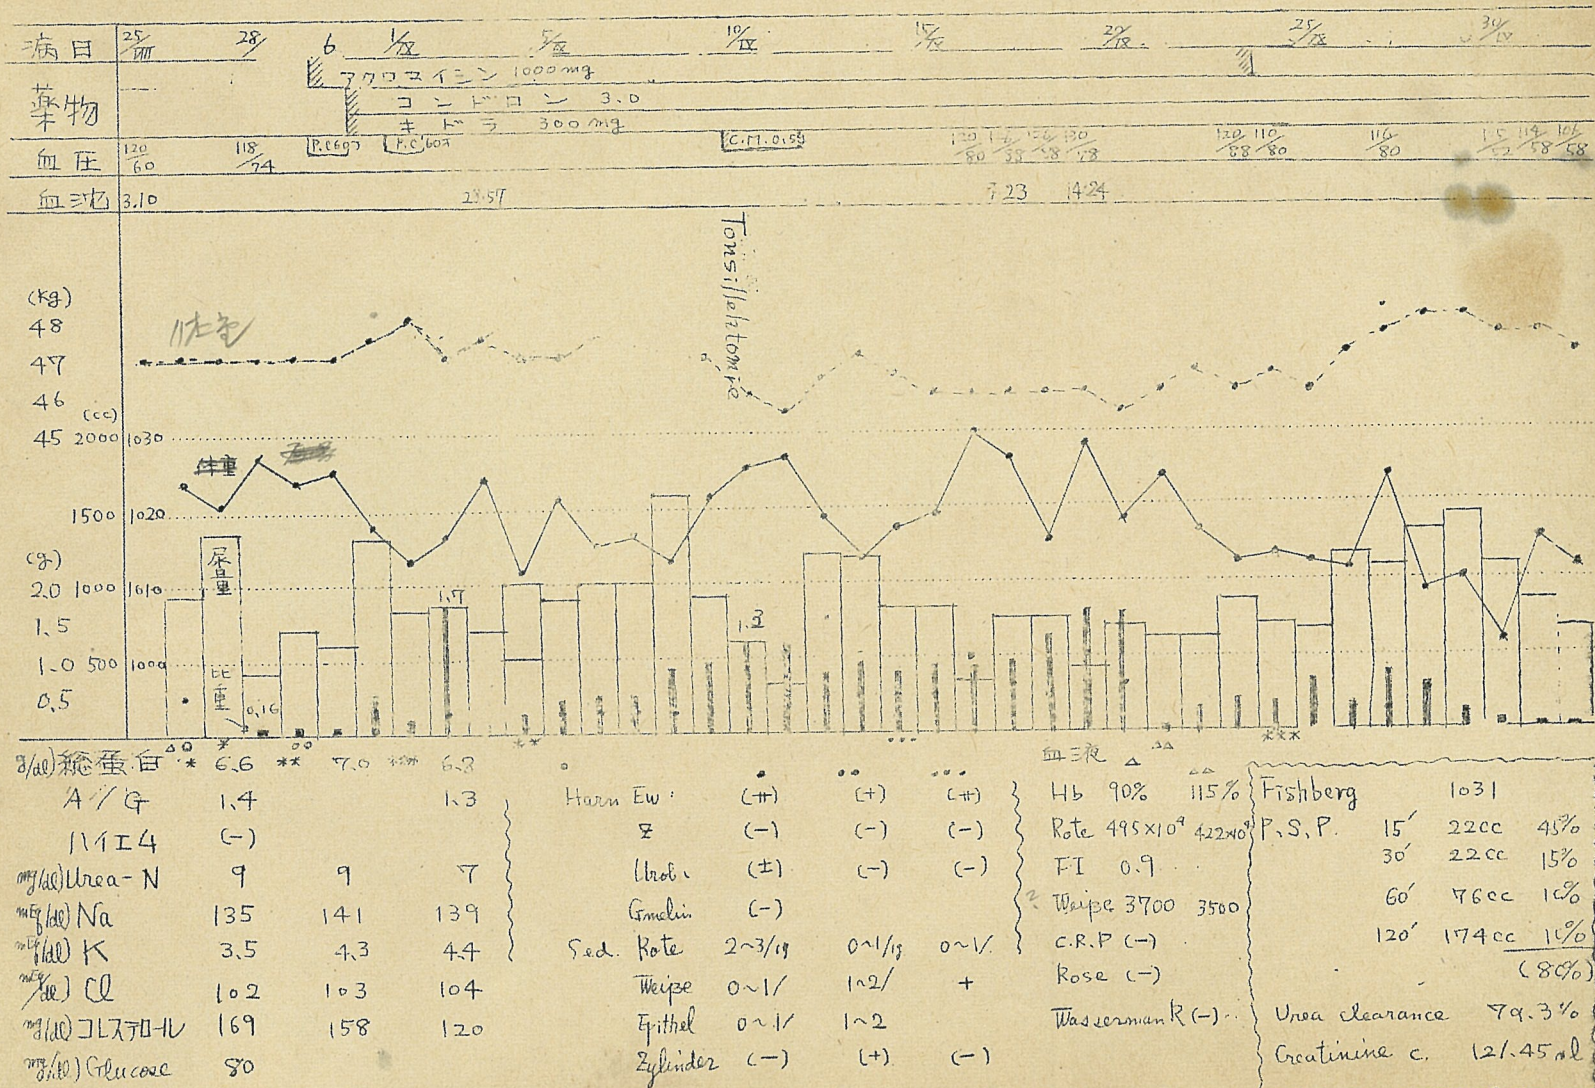 病日 25/VIII 28/ 6 1/IX 5/IX 10/IX 15/IX 20/IX 25/IX 30/IX
薬物
アクロマイシン 1000mg
コンドロン 3.0
キドラ 300mg
血圧 120/60 118/74 C.M.0.5g 120/88 110/80 116/80
血沈 3.10 28.57 7.23 14.24
Tonsillektomie
(Kg)
48 体重
47
46
(cc)
45 2000 1030
体重
1500 1020
尿量
(g)
2.0 1000 1010
1.7
1.5
1.3
1.0 500 1000
比重
0.5
0.16
g/dl) 総蛋白 * 6.6 ** 7.0 *** 6.8
A/G 1.4 1.3
ハイエム (-)
mg/dl) Urea-N 9 9 7
mEq/dl) Na 135 141 139
mEq/dl) K 3.5 4.3 4.4
mEq/dl) Cl 102 103 104
mg/dl) コレステロール 169 158 120
mg/dl) Glucose 80
Harn Ew: (++) (+) (++)
Z (-) (-) (-)
Urob. (±) (-) (-)
Gmelin (-)
Sed. Rote 2~3/ 0~1/ 0~1/
Weiße 0~1/ 1~2/ +
Epithel 0~1/ 1~2
Zylinder (-) (+) (-)
血液
Hb 90% 115%
Rote 495×10⁴ 422×10⁴
FI 0.9
Weiße 3700 3500
C.R.P (-)
Rose (-)
Wasserman R (-)
Fishberg 1031
P.S.P. 15′ 22cc 45%
30′ 22cc 15%
60′ 76cc 10%
120′ 174cc 10%
(80%)
Urea clearance 79.3%
Creatinine c. 121.45 ml